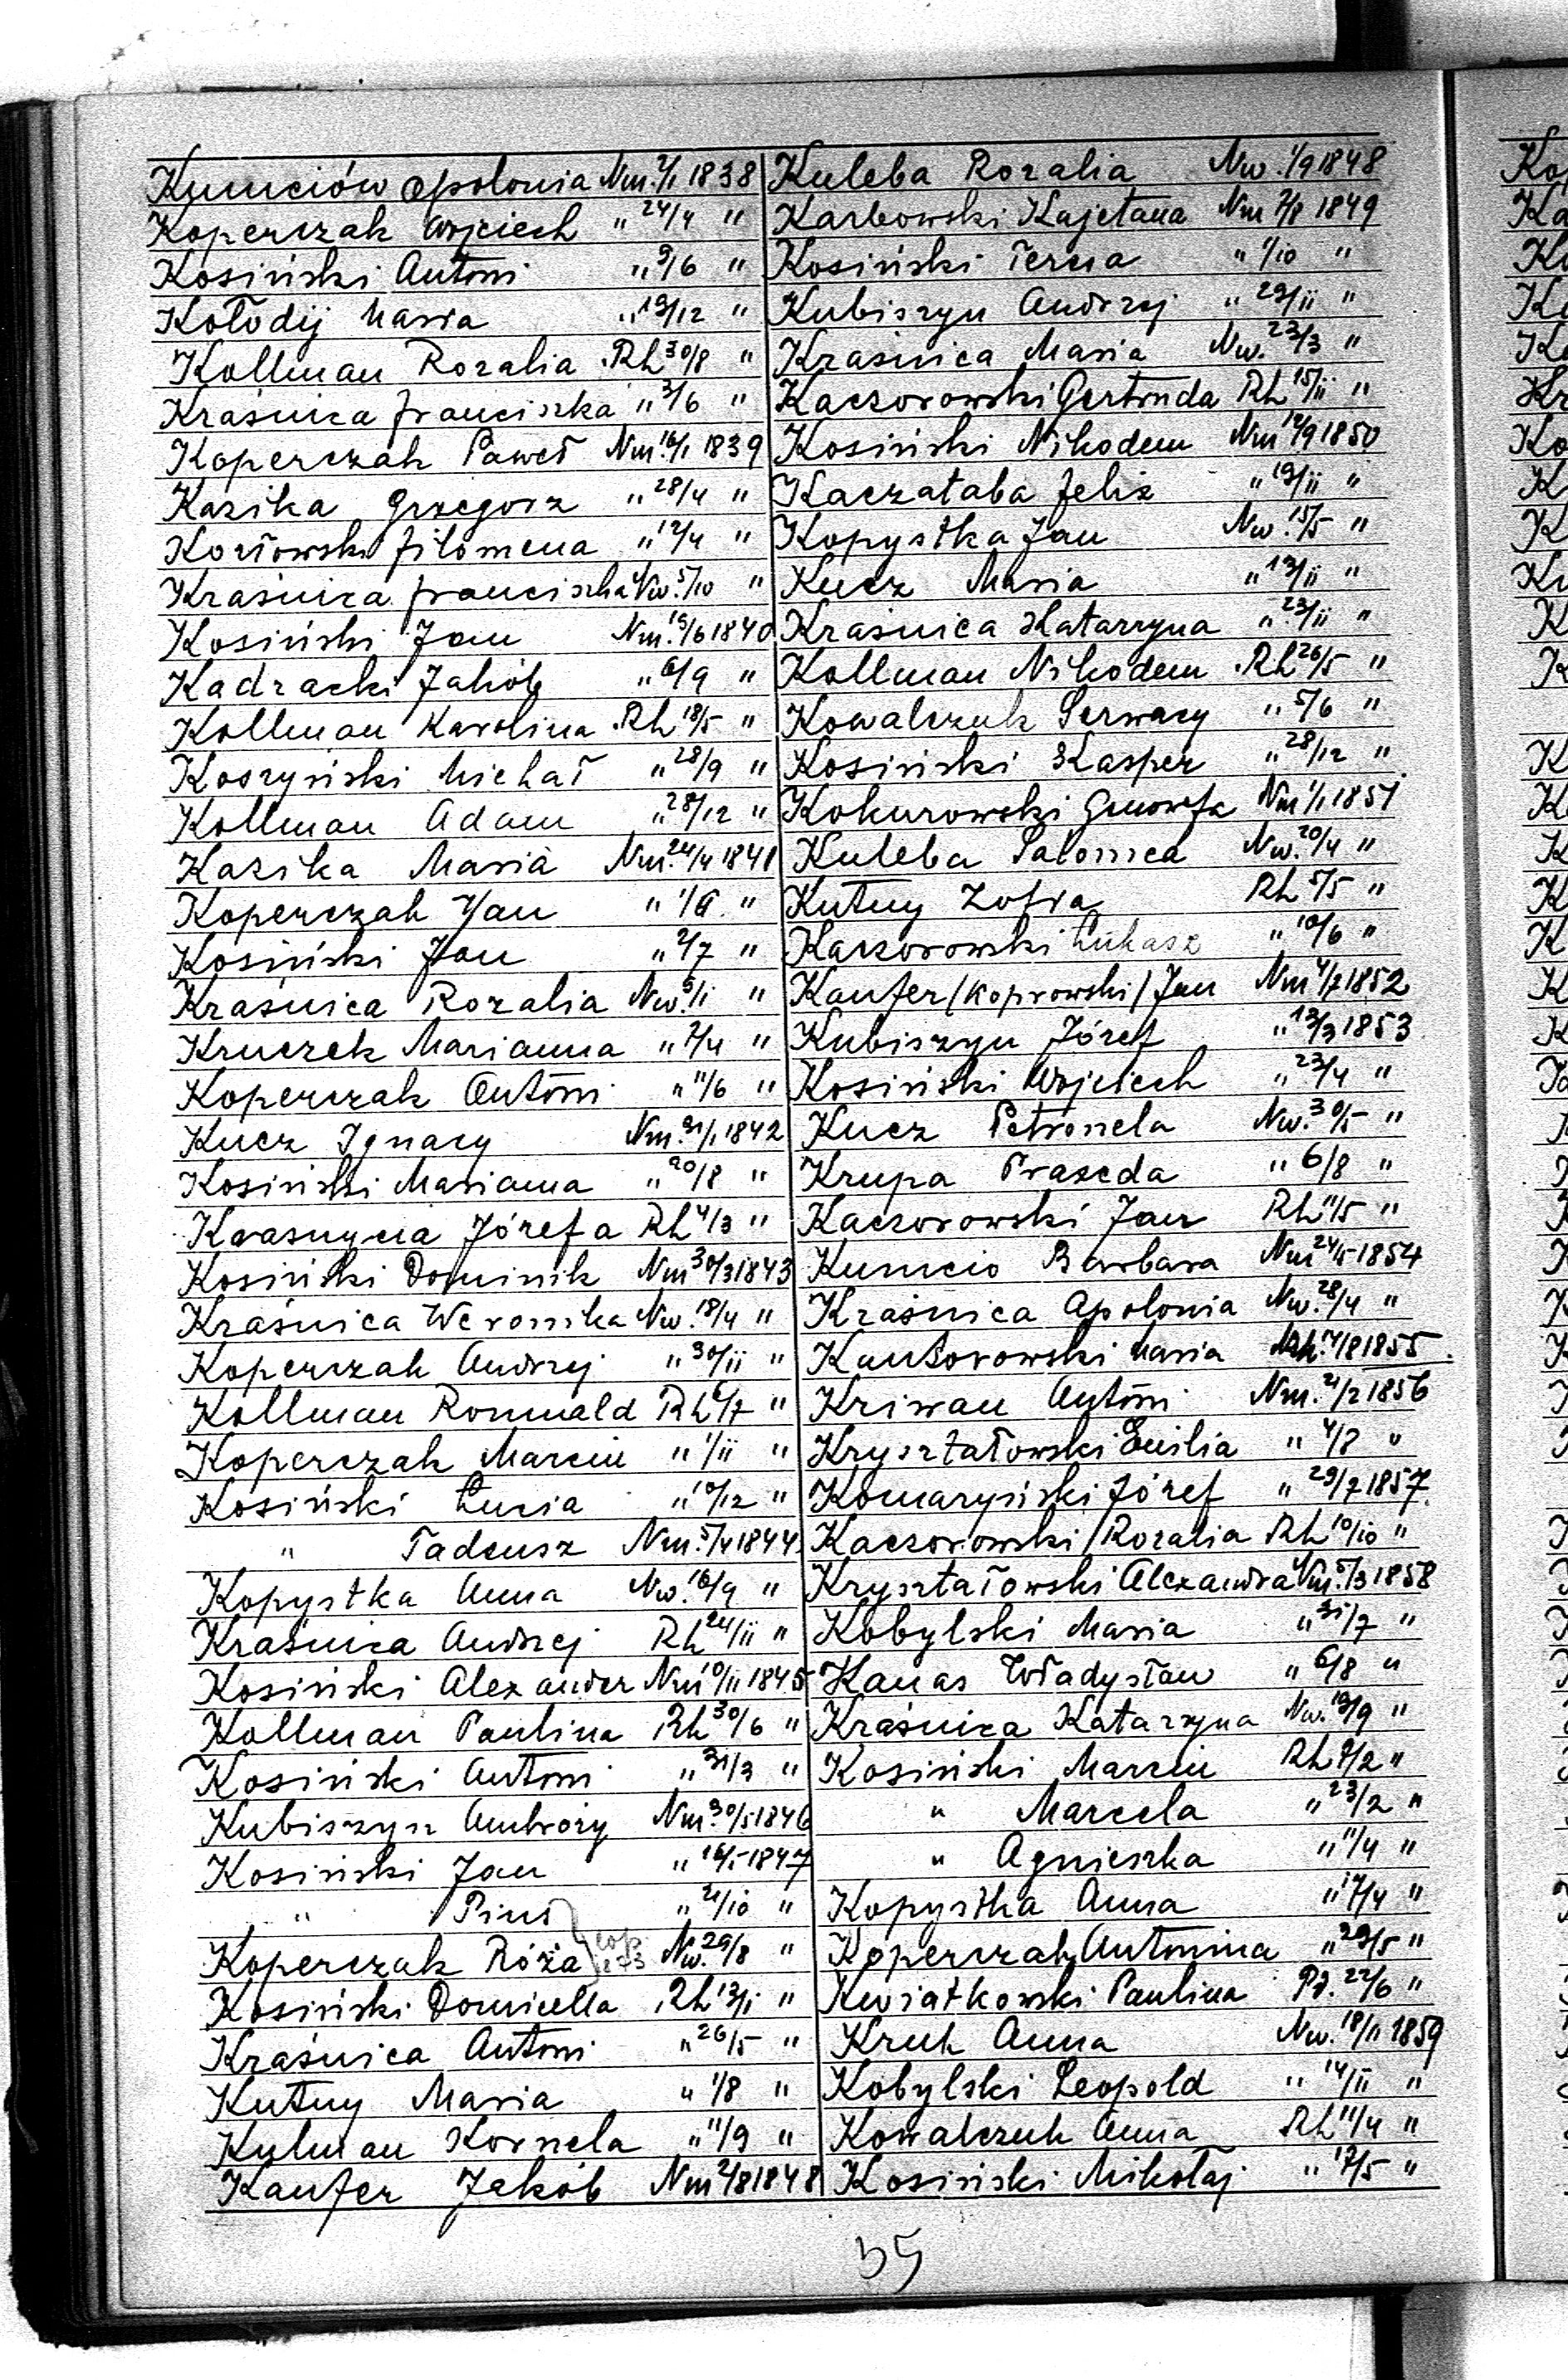 Kumciów Apolonia Nm. 2/1 1838
Koperczak Wojciech " 24/4 "
Kosiński Antoni " 9/6 "
Kołodij Maria " 19/12 "
Kollman Rozalia Rh 30/8 "
Kraśnica Franciszka " 3/6 "
Koperczak Paweł Nm. 16/1 1839
Kazika Grzegorz " 28/4 "
Kozłowski Filomena " 12/4 "
Kraśnica Franciszka Nw. 5/10 "
Kosiński Jan Nm. 19/6 1840
Kadracki Jakób " 6/9 "
Kollman Karolina Rh 18/5 "
Koszyński Michał " 28/9 "
Kollman Adam " 28/12 "
Kazika Maria Nm. 24/4 1841
Koperczak Jan " 1/6 "
Kosiński Jan " 2/7 "
Kraśnica Rozalia Nw. 5/1 "
Kruczek Marianna " 2/4 "
Koperczak Antoni " 11/6 "
Kucz Ignacy Nm. 31/1 1842
Kosiński Marianna " 20/8 "
Krasnycia Józefa Rh 4/3 "
Kosiński Dominik Nm 30/3 1843
Kraśnica Weronika Nw. 18/4 "
Koperczak Andrzej " 30/11 "
Kollman Romuald Rh 6/7 "
Koperczak Marcin " 1/11 "
Kosiński Łucia " 10/12 "
" Tadeusz Nm. 5/4 1844
Kopystka Anna Nw. 16/9 "
Kraśnica Andrzej Rh 24/11 "
Kosiński Alexander Nm 10/11 1845
Kollman Paulina Rh 30/6 "
Kosiński Antoni " 31/3 "
Kubiszyn Ambroży Nm. 30/5 1846
Kosiński Jan " 16/5 1847
" Pius " 21/10 "
Koperczak Róża Nw. 29/8 "
Kosiński Domicella Rh 13/1 "
Kraśnica Antoni " 26/5 "
Kutny Maria " 1/8 "
Kulman Kornela " 11/9 "
Kaufer Jakób Nm 2/8 1848
Kuleba Rozalia Nw. 1/9 1848
Karbowski Kajetana Nm 7/8 1849
Kosiński Teresa " 1/10 "
Kubiszyn Andrzej " 29/11 "
Kraśnica Maria Nw. 23/3 "
Kaczorowski Gertruda Rh 15/11 "
Kosiński Nikodem Nm 12/9 1850
Kaczataba Felix " 19/11 "
Kopystka Jan Nw. 15/5 "
Kucz Maria " 19/11 "
Kraśnica Katarzyna " 23/11 "
Kollman Nikodem Rh 26/5 "
Kowalczuk Serwacy " 5/6 "
Kosiński Kasper " 28/12 "
Kokurowski Genowefa Nm 1/1 1851
Kuleba Salomea Nw. 20/4 "
Kutny Zofia Rh 5/5 "
Kaczorowski Łukasz " 10/6 "
Kaufer /Koprowski/ Jan Nm 4/7 1852
Kubiszyn Józef " 13/3 1853
Kosiński Wojciech " 23/4 "
Kucz Petronela Nw. 30/5 "
Krupa Prakseda " 6/8 "
Kaczorowski Jan Rh 11/5 "
Kumcio Barbara Nm 24/5 1854
Kraśnica Apolonia Nw. 28/4 "
Kantorowski Maria Rh. 4/8 1855
Kriwan Antoni Nm. 21/2 1856
Kryształowski Emilia " 4/8 "
Komaryński Józef " 29/7 1857
Kaczorowski Rozalia Rh 10/10 "
Kryształowski Alexandra Nm. 5/3 1858
Kobylski Maria " 31/7 "
Kanas Władysław " 6/8 "
Kraśnica Katarzyna Nw. 19/9 "
Kosiński Marcin Rh 8/2 "
" Marcela " 23/2 "
" Agnieszka " 11/4 "
Kopystka Anna " 17/4 "
Koperczak Antonina " 29/5 "
Kwiatkowski Paulina Pd. 22/6 "
Kruk Anna Nw. 18/11 1859
Kobylski Leopold " 14/11 "
Kowalczuk Anna Rh 11/4 "
Kosiński Mikołaj " 17/5 "